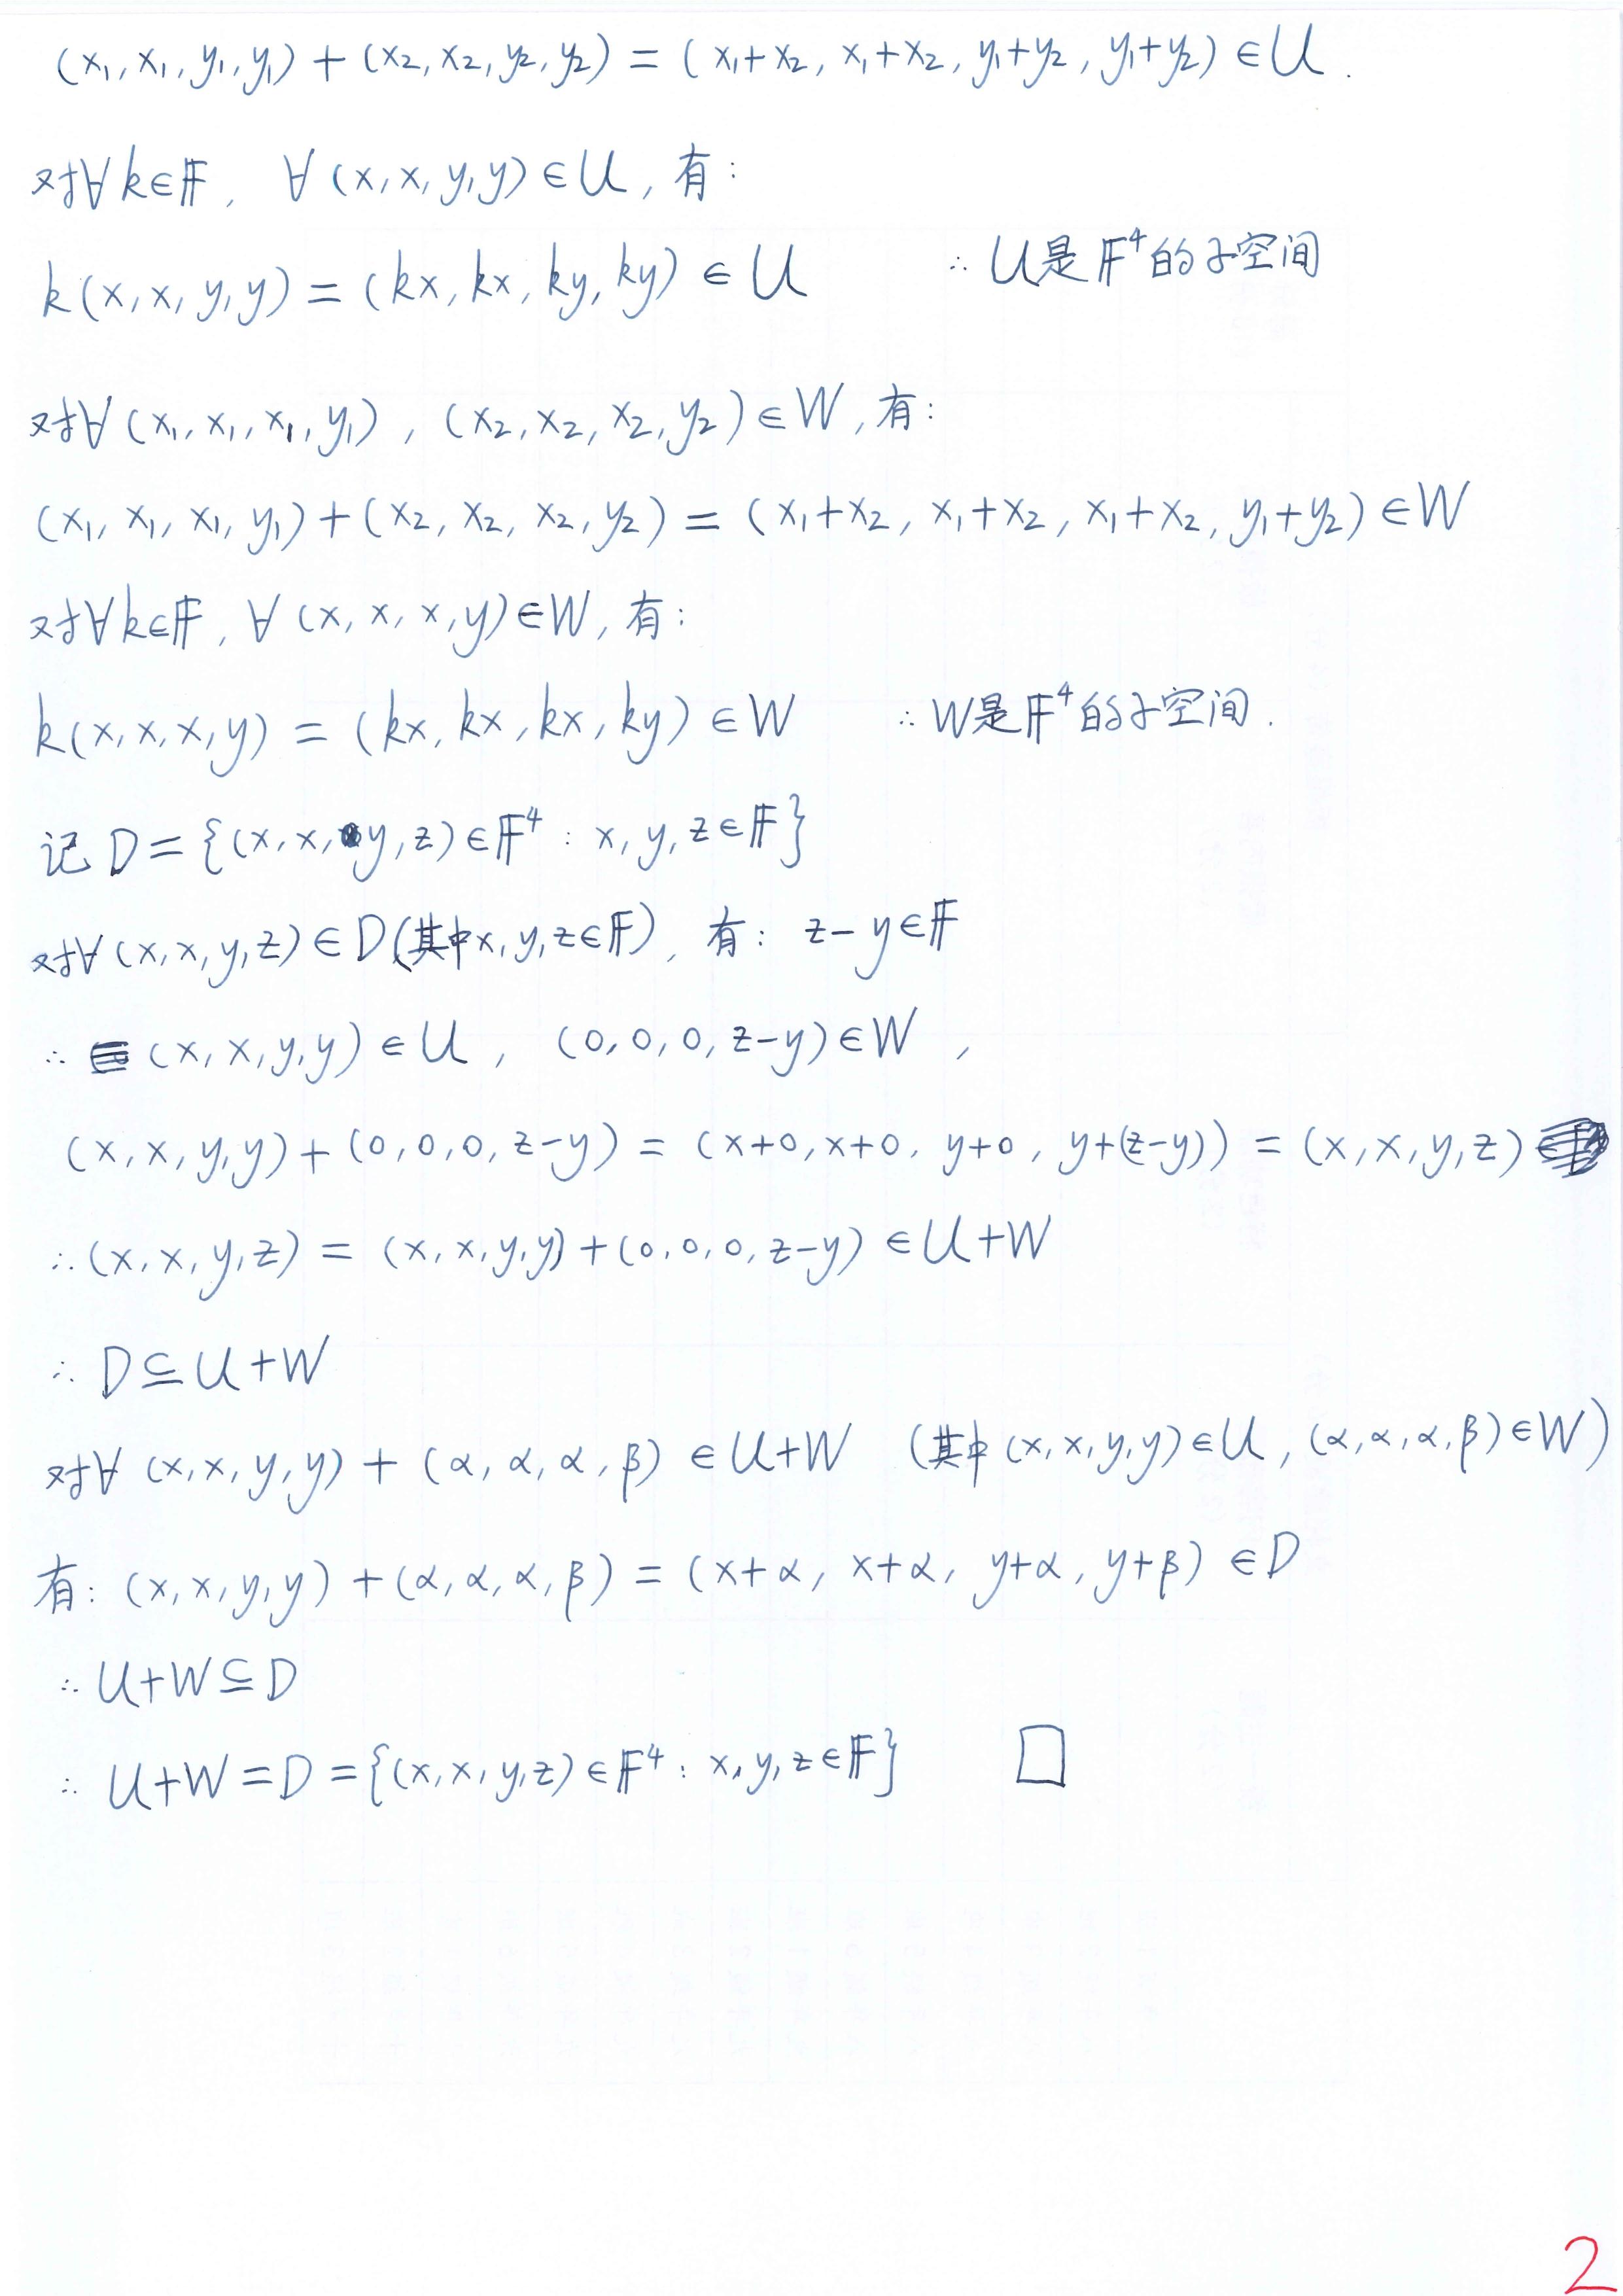 (x₁, x₁, y₁, y₁) + (x₂, x₂, y₂, y₂) = (x₁+x₂, x₁+x₂, y₁+y₂, y₁+y₂) ∈ U.
对∀k∈𝔽, ∀(x, x, y, y)∈U, 有:
k(x, x, y, y) = (kx, kx, ky, ky) ∈ U ∴ U是𝔽⁴的子空间
对∀(x₁, x₁, x₁, y₁), (x₂, x₂, x₂, y₂)∈W, 有:
(x₁, x₁, x₁, y₁) + (x₂, x₂, x₂, y₂) = (x₁+x₂, x₁+x₂, x₁+x₂, y₁+y₂) ∈ W
对∀k∈𝔽, ∀(x, x, x, y)∈W, 有:
k(x, x, x, y) = (kx, kx, kx, ky) ∈ W ∴ W是𝔽⁴的子空间.
记 D = {(x, x, y, z)∈𝔽⁴ : x, y, z∈𝔽}
对∀(x, x, y, z)∈D(其中x, y, z∈𝔽), 有: z-y∈𝔽
∴ (x, x, y, y)∈U, (0, 0, 0, z-y)∈W,
(x, x, y, y) + (0, 0, 0, z-y) = (x+0, x+0, y+0, y+(z-y)) = (x, x, y, z)
∴ (x, x, y, z) = (x, x, y, y) + (0, 0, 0, z-y) ∈ U+W
∴ D⊆U+W
对∀ (x, x, y, y) + (α, α, α, β) ∈ U+W (其中(x, x, y, y)∈U, (α, α, α, β)∈W)
有: (x, x, y, y) + (α, α, α, β) = (x+α, x+α, y+α, y+β) ∈ D
∴ U+W⊆D
∴ U+W = D = {(x, x, y, z)∈𝔽⁴ : x, y, z∈𝔽} □
2